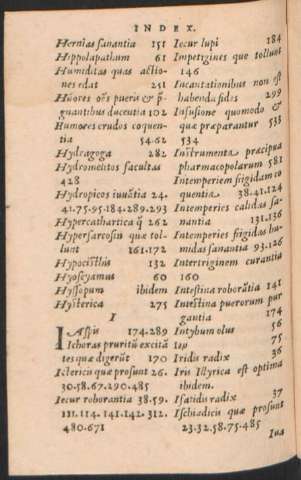 INDEX.
Hernias sanantia 151
Hippolapathum 61
Humiditas quas actiones edat 251
Humores crudos coquentia 54.62
Hydragoga 282
Hydromelitos facultas
428
Hydropicos iuuãtia 24.
41.75.95.184.289.293
Hypercathartica q̃ 262
Hypersarcosin quæ tollunt
161.172
Hypocisthis 132
Hyoscyamus 60
Hyssopum ibidem
Hysterica 275
I
IAspis 174.289
Ichoras pruritũ excitãtes
quæ digerũt 170
Ictericis quæ prosunt 26.
30.58.67.290.485
Iecur roborantia 38.59.
111.114.141.142.312.
480.671
Iecur lupi 184
Impetigines quæ tollunt
146
Incantationibus non est
habenda fides 299
Infusione quomodo &
quæ præparantur 533
534
Instrumenta præcipua
pharmacopolarum 581
Intemperiem frigidam coquentia
38.41.124
Intemperies calidas sanantia
131.136
Intemperies frigidas humidas
sanantia 93.126
Intertriginem curantia
160
Intestina roborãtia 141
Intestina puerorum purgantia
174
Intybum olus 56
Ion 75
Iridis radix 36
Iris Illyrica est optima
ibidem.
Isatidis radix 37
Ischiadicis quæ prosunt
23.32.58.75.485
Iua